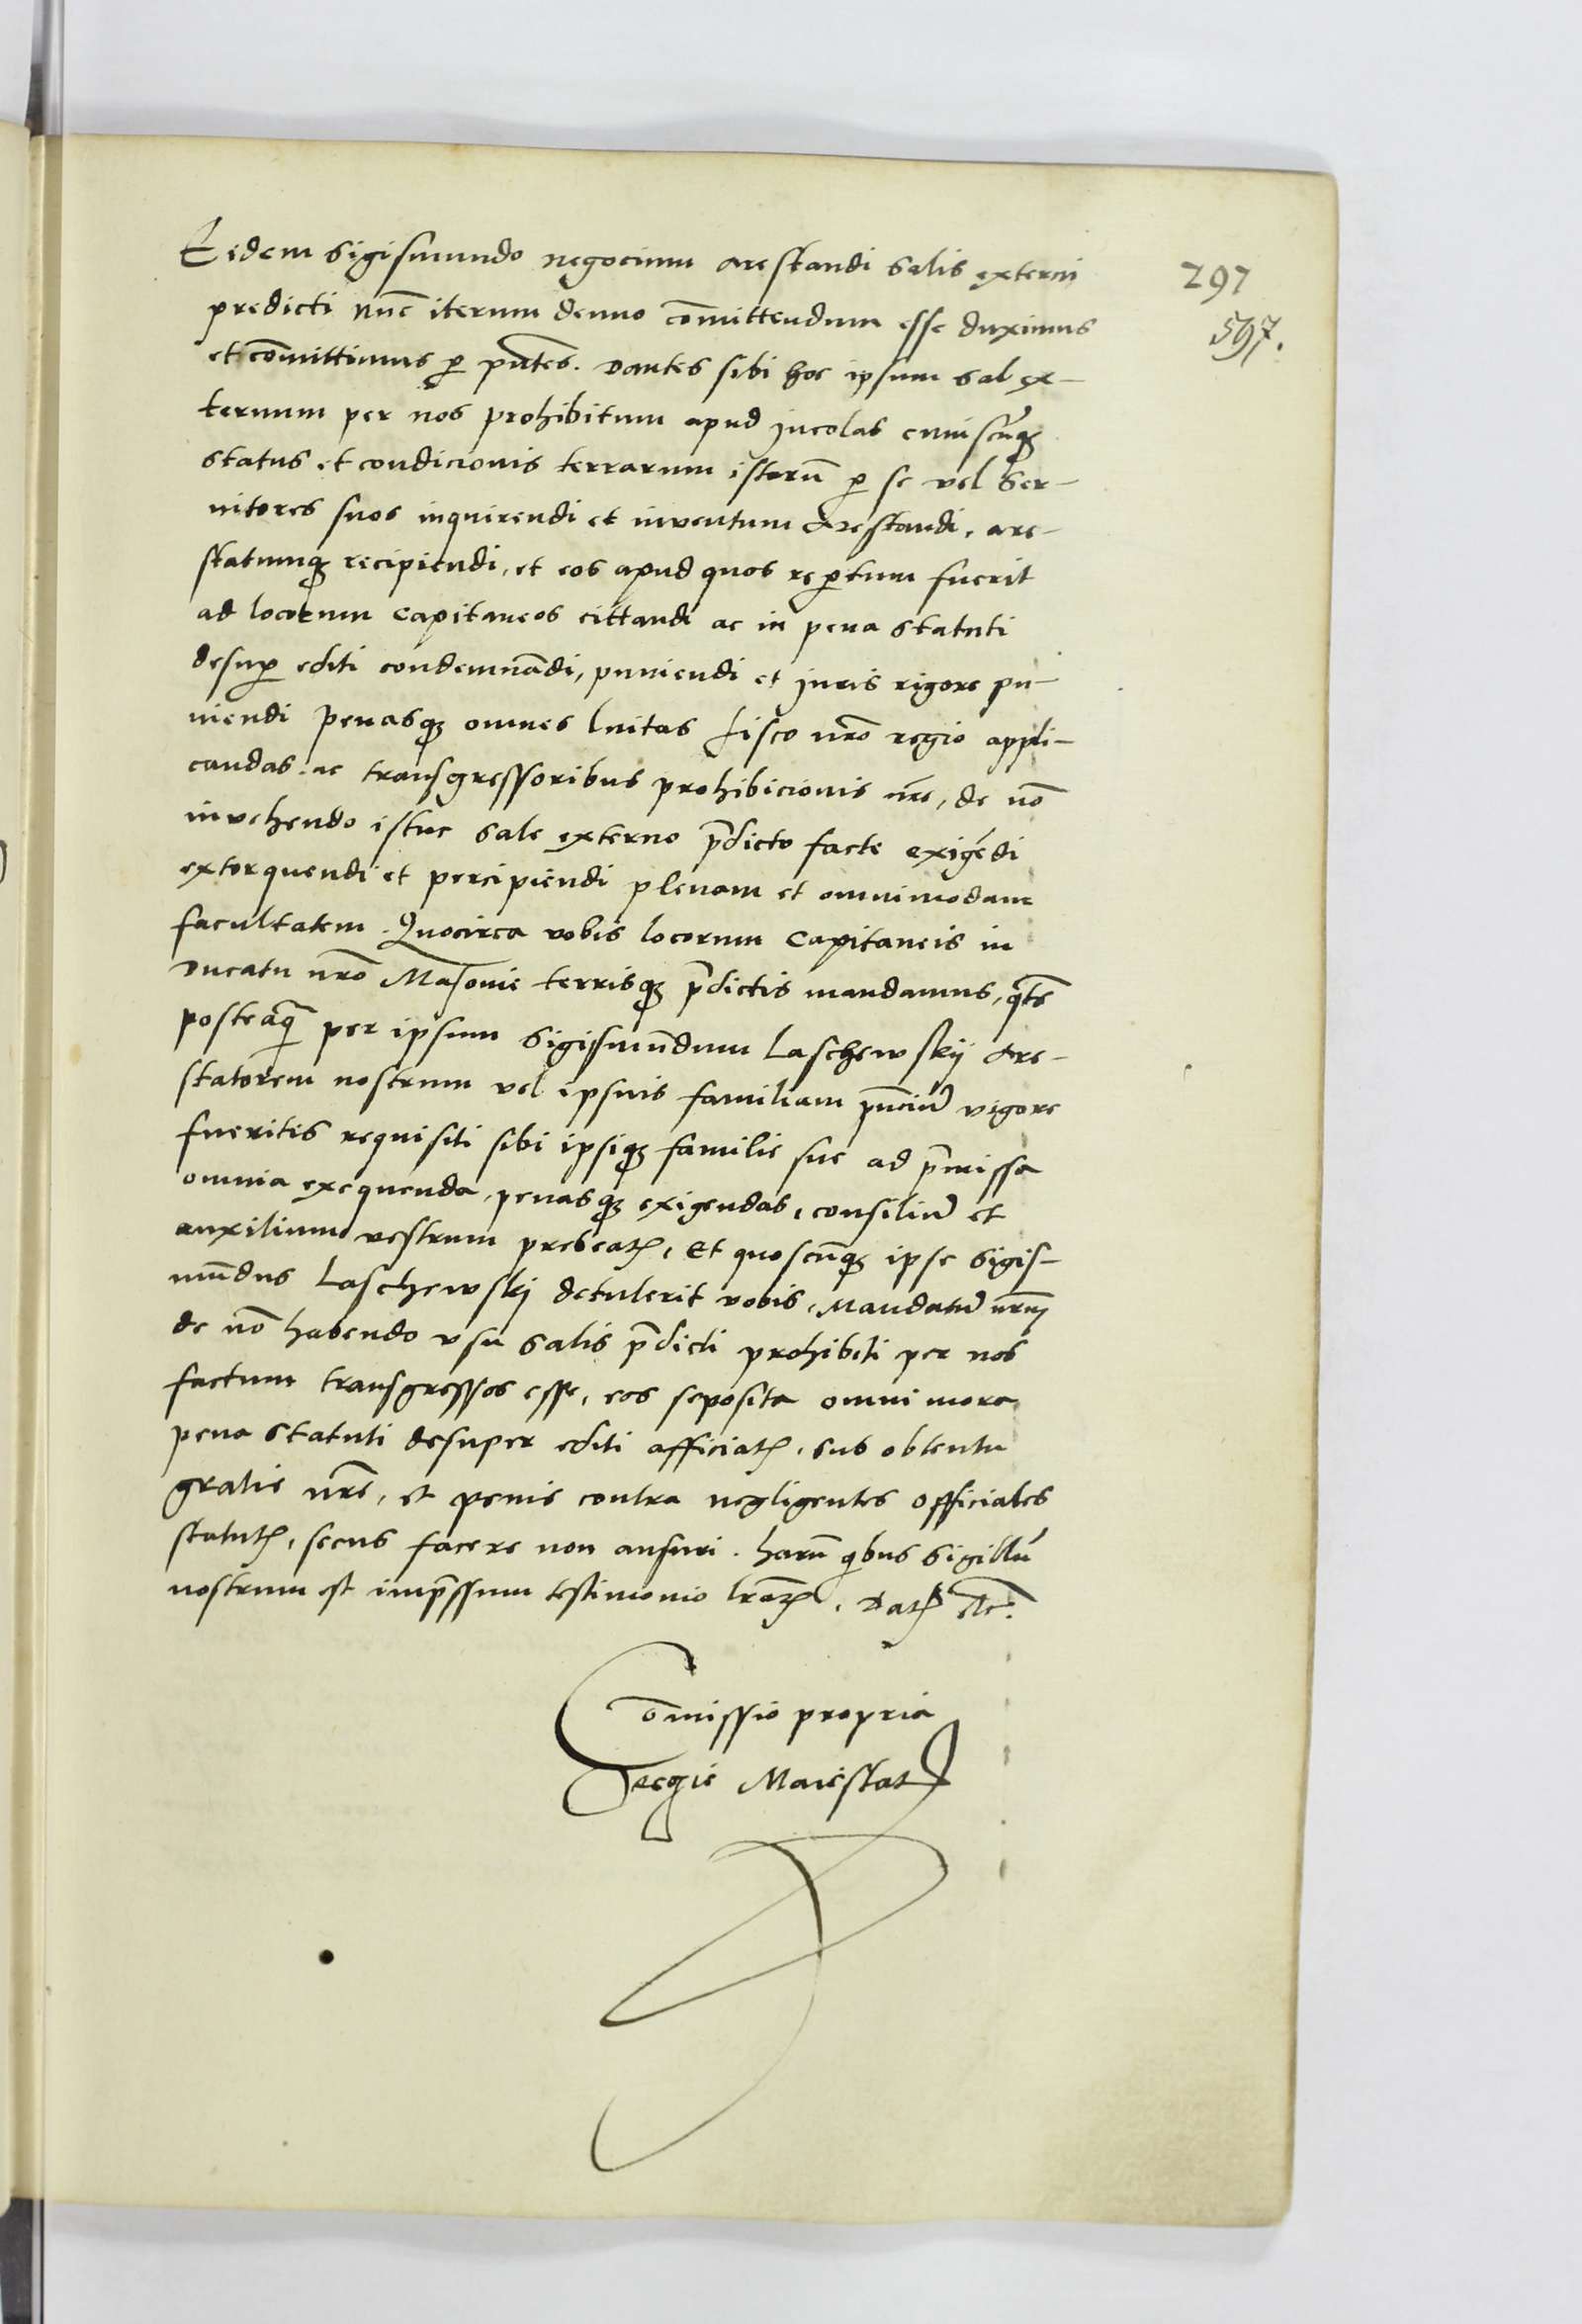 Eidem Sigismundo negocium arestandi salis externi
297
predicti nūc iterum denuo cōmittendum esse duximus
597.
et cōmittimus ꝑ pn̄tes. Dantes sibi hoc ipsum sal ex-
ternum per nos prohibitum apud incolas cuiuscūqꝫ
status et condicionis terrarum istarū ꝑ se vel ser-
uitores suos inquirendi et inuentum arestandi, are-
statumqꝫ recipiendi, et eos apud quos reꝑtum fuerit
ad locorum capitaneos cittandi ac in pena statuti
desuꝑ editi condemnādi, puniendi et juris rigore pu-
niendi penasqꝫ omnes luitas fisco nr̄o regio appli-
candas. ac transgressoribus prohibicionis nr̄e, de nō
inuehendo istuc sale externo p̄dicto facte exigēdi
extorquendi et percipiendi plenam et omnimodam
facultatem. Quocirca vobis locorum capitaneis in
Ducatu nr̄o Masouie terrisqꝫ p̄dictis mandamus, qt̄e
posteaq̄ per ipsum Sigismūdum Laschewskÿ are-
statorem nostrum vel ipsius familiam pn̄ciū vigore
fueritis requisiti sibi ipsiqꝫ familie sue ad p̄missa
omnia exequenda, penasqꝫ exigendas, consiliū et
auxilium vestrum prebeatꝭ, et quoscūqꝫ ipse Sigis-
mūdus Laschewskj detulerit vobis, Mandatū nr̄m
de nō habendo vsu salis p̄dicti prohibiti per nos
factum transgressos esse, eos seposita omni mora
pena statuti desuper editi afficiatꝭ, sub obtentu
gratie nr̄e, et penis contra negligentes officiales
statutꝭ, secus facere non ausuri. harū qibus sigillū
nostrum est imp̄ssum testimonio lr̄aꝝ. Datꝭ etc.
Cōmissio propria
Regie Maiestatꝭ